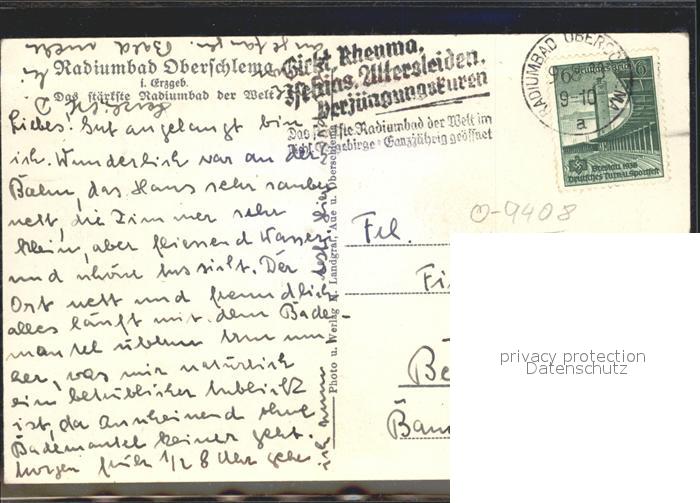 Radiumbad Oberschlema
i. Erzgeb.
Das stärkste Radiumbad der Welt
Gicht, Rheuma,
Ischias, Altersleiden,
Verjüngungskuren
Das stärkste Radiumbad der Welt im
Ganzjährig geöffnet
RADIUMBAD OBERSCHLEMA
9-10
a
Deutsches Reich
6
Breslau 1938
Deutsches Turn u. Sportfest
Photo u. Verlag Landgraf, Aue u. Oberschlema
O-9408
Liebes! Gut angelangt bin
ich. Wunderlich war an der
Bahn, das Haus sehr sauber
nett, die Zimmer sehr
klein, aber fliessend Wasser
und schöne Aussicht. Der
Ort nett und freundlich
alles läuft mit dem Bade-
mantel um-
her, was mir natürlich
ein Anblick
ist, da Anscheinend ohne
Bademantel keiner geht.
Morgen früh 1/2 8 Uhr gehe
ich zum
Frl.
Fi
Be
privacy protection
Datenschutz